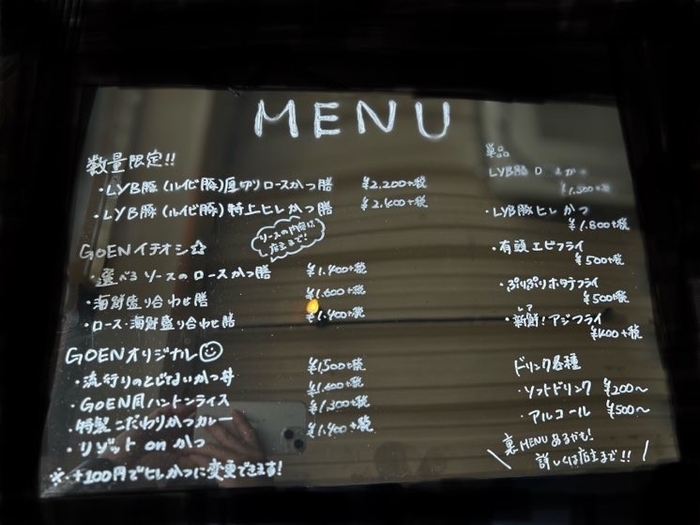 MENU
数量限定!!
・LYB豚(ルイビ豚)厚切りロースかつ膳 ¥2,200+税
・LYB豚(ルイビ豚)特上ヒレかつ膳 ¥2,400+税
ソースの内容は
店主まで!
GOENイチオシ☆
・選べるソースのロースかつ膳 ¥1,400+税
・海鮮盛り合わせ膳 ¥1,600+税
・ロース・海鮮盛り合わせ膳 ¥1,400+税
GOENオリジナル
・流行りのとじないかつ丼 ¥1,500+税
・GOEN風ハントンライス ¥1,400+税
・特製こだわりかつカレー ¥1,300+税
・リゾット on かつ ¥1,400+税
※・+100円でヒレかつに変更できます!
単品
LYB豚
・LYB豚ヒレかつ
¥1,800+税
・有頭エビフライ
¥500+税
・ぷりぷりホタテフライ
¥500+税
・新鮮!アジフライ
¥400+税
ドリンク各種
・ソフトドリンク ¥200〜
・アルコール ¥500〜
裏MENUあるかも!
詳しくは店主まで!!